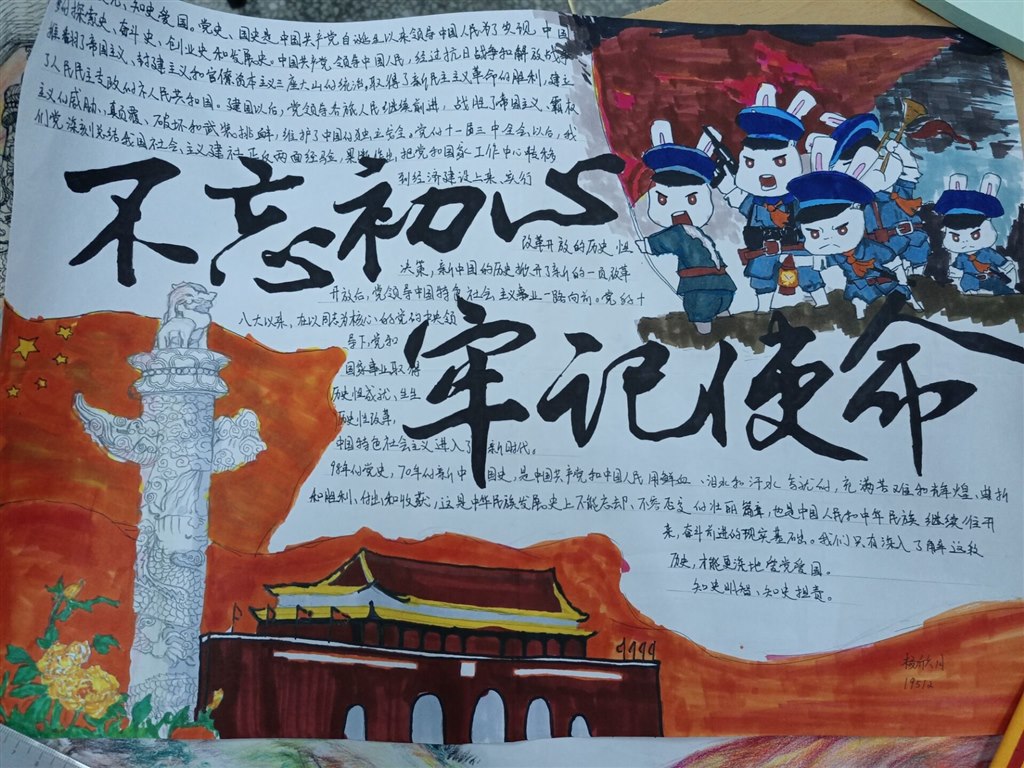 知史爱国。党史、国史是中国共产党自诞生以来领导中国人民为了实现中国
探索史、奋斗史、创业史和发展史。中国共产党领导中国人民,经过抗日战争和解放战
推翻了帝国主义、封建主义和官僚资本主义三座大山的统治,取得了新民主主义革命的胜利,建立
了人民民主专政的 人民共和国。建国以后,党领导各族人民继续前进,战胜了帝国主义、霸权
主义的威胁、颠覆、破坏和武装挑衅,维护了中国的独立安全。党的十一届三中全会以后,我
们党深刻总结我国社会主义建设正反两面经验,果断作出把党和国家工作中心转移
到经济建设上来、实行
不忘初心
改革开放的历史性
决策,新中国的历史掀开了新的一页改革
开放后,党领导中国特色社会主义事业一路向前。党的十
八大以来,在以同志为核心的党的中央领
导下,党和
国家事业取得
历史性成就、生生
历史性改革,
牢记使命
中国特色社会主义进入了新时代。
98年的党史,70年的新中国史,是中国共产党和中国人民用鲜血、泪水和汗水写就的,充满苦难和辉煌、挫折
和胜利、付出和收获,这是中华民族发展史上不能忘却、不容否定的壮丽篇章,也是中国人民和中华民族继续往开
来,奋斗前进的现实基础。我们只有深入了解这段
历史,才能更深地爱党爱国。
知史明智、知史担责。
19512